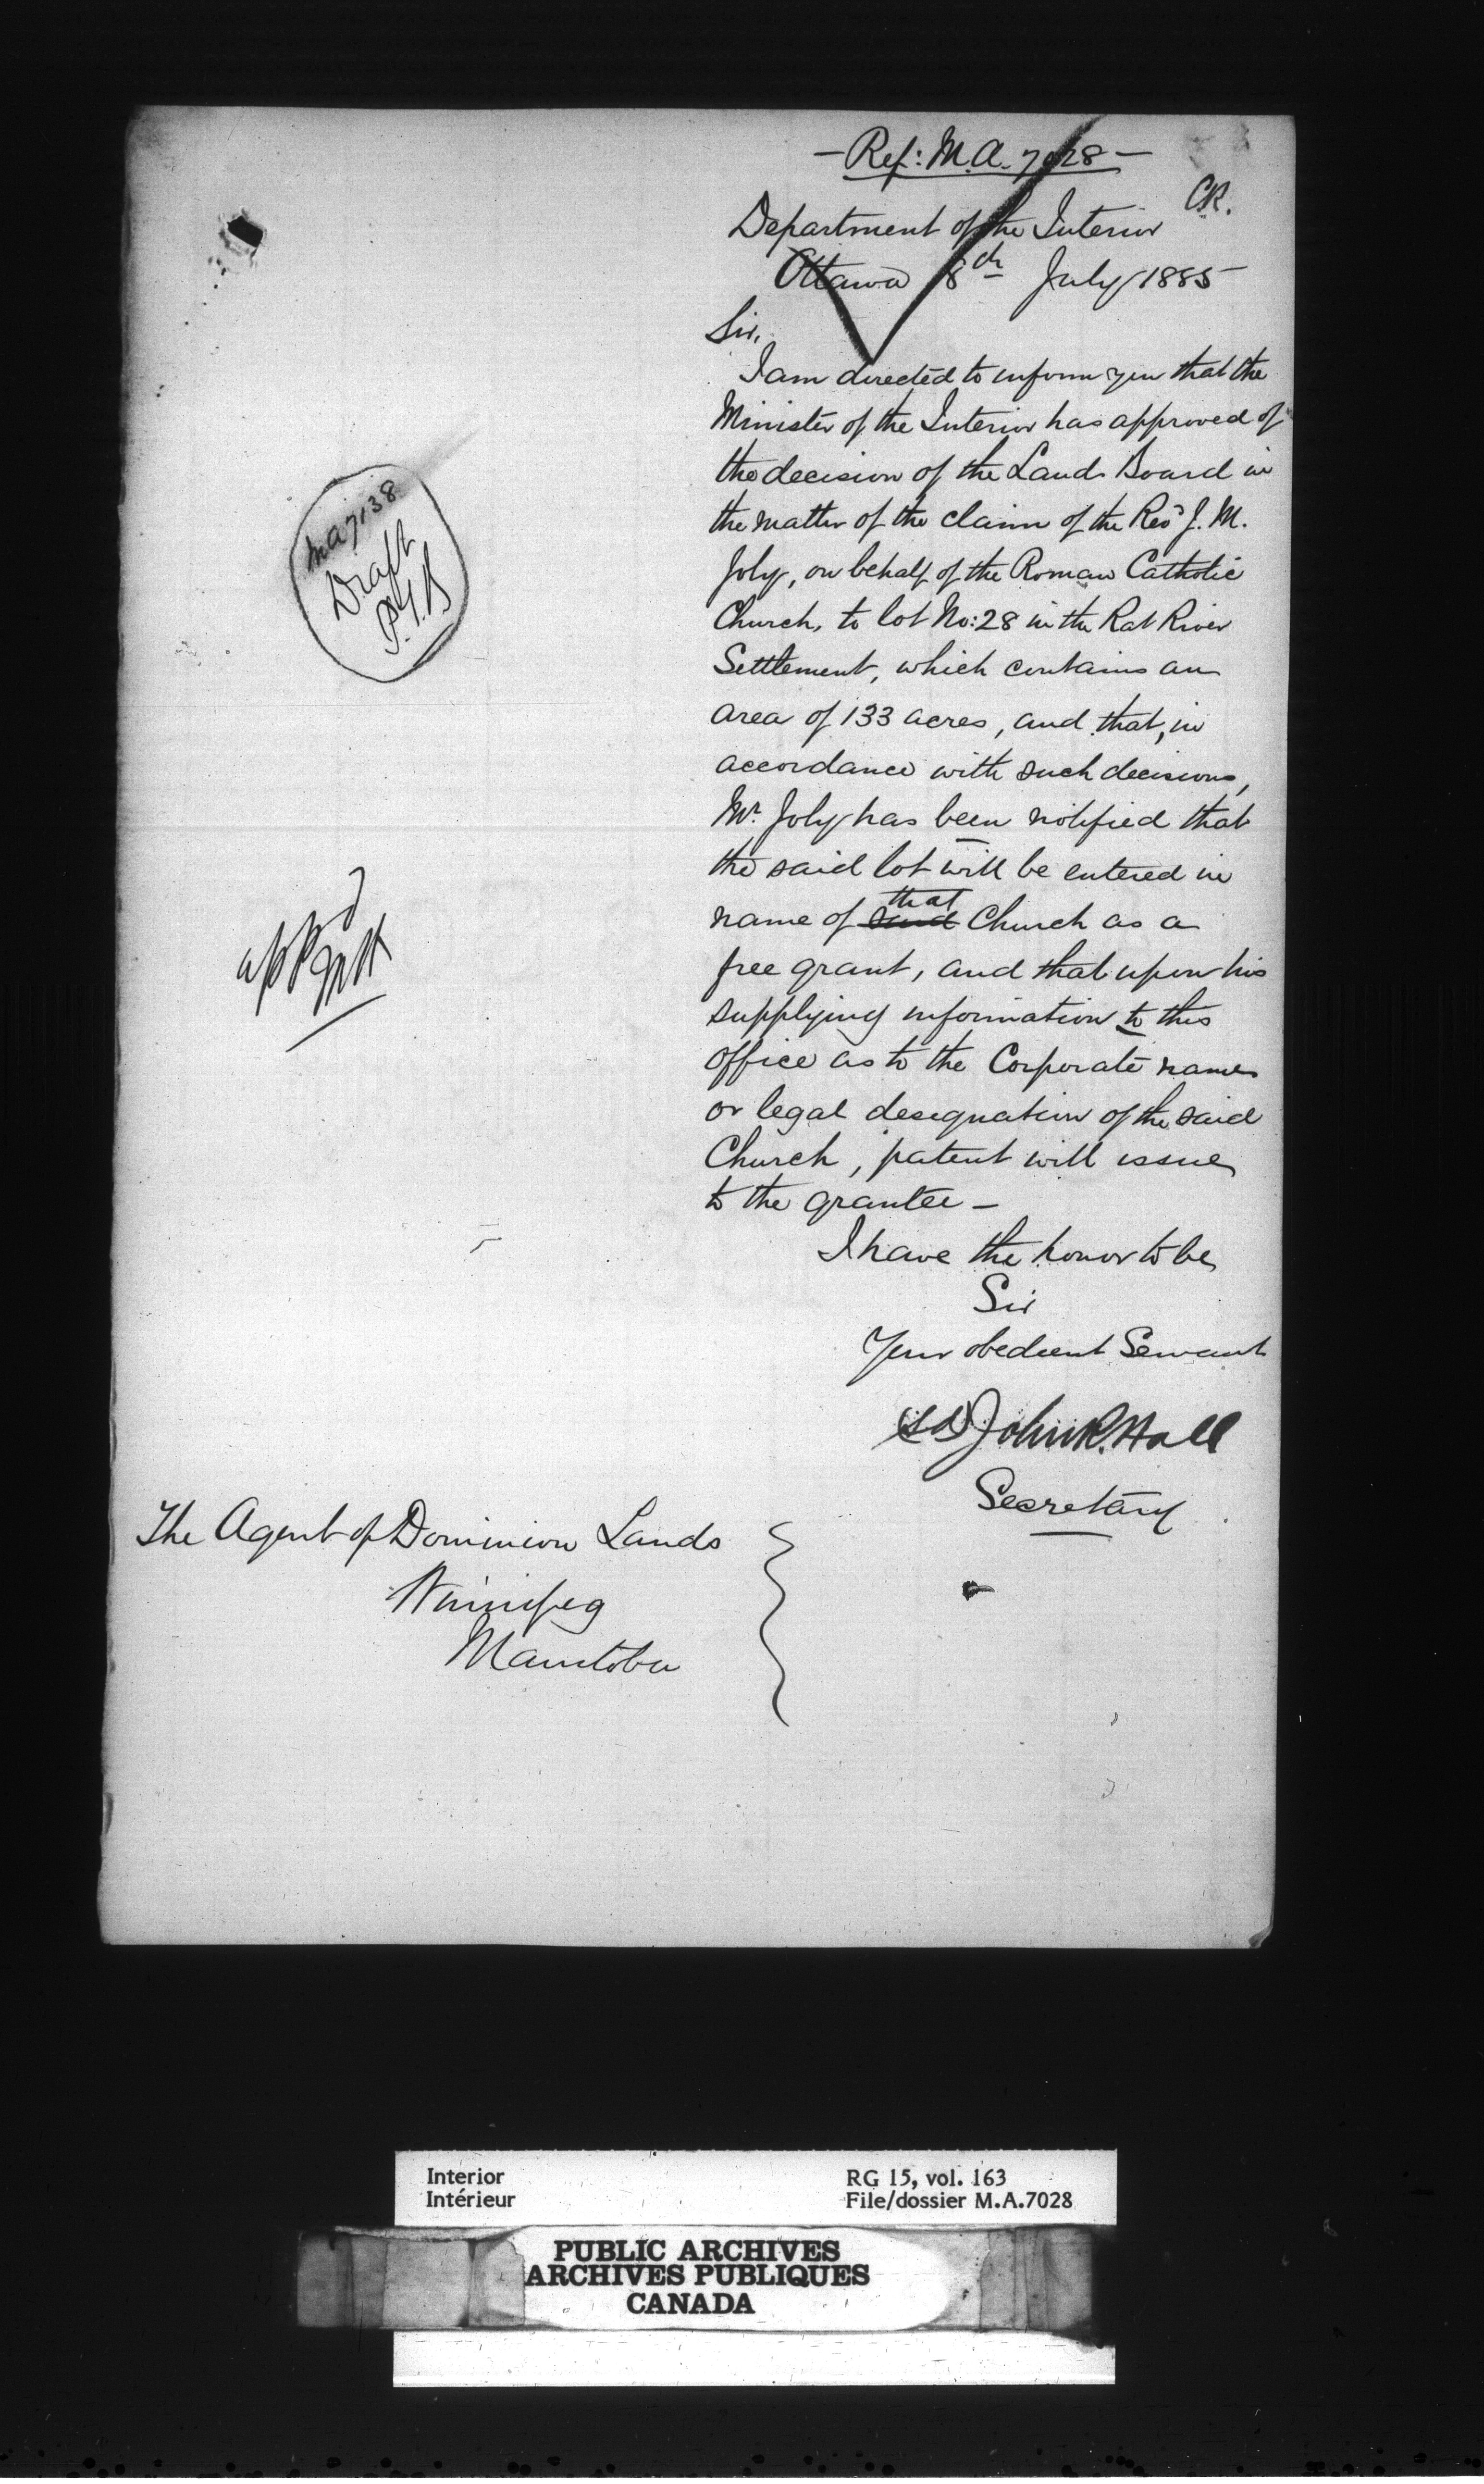 – Ref: M.A. 7028 –
C.R.
Department of the Interior
Ottawa 8th July 1885
Sir,
I am directed to inform you that the
Minister of the Interior has approved of
the decision of the Land Board in
the matter of the claim of the Revd J. M.
Joly, on behalf of the Roman Catholic
Church, to lot No: 28 in the Rat River
Settlement, which contains an
area of 133 acres, and that, in
accordance with such decision,
Mr. Joly has been notified that
the said lot will be entered in
name of said that Church as a
free grant, and that upon his
supplying information to this
office as to the Corporate name
or legal designation of the said
Church, patent will issue
to the grantee –
I have the honor to be
Sir
Your obedient Servant
(sd) John R. Hall
Secretary
The Agent of Dominion Lands
Winnipeg
Manitoba
MA 7138
Draft
Interior
Intérieur
RG 15, vol. 163
File/dossier M.A.7028
PUBLIC ARCHIVES
ARCHIVES PUBLIQUES
CANADA